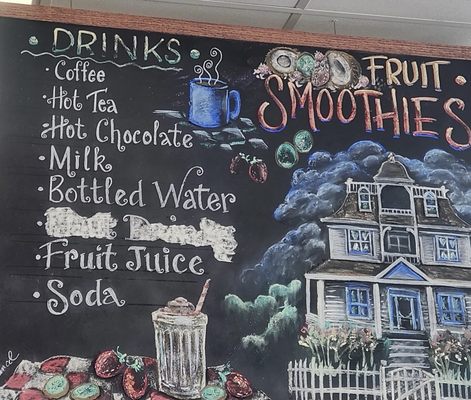 DRINKS
Coffee
Hot Tea
Hot Chocolate
Milk
Bottled Water
Fruit Juice
Soda
FRUIT
SMOOTHIES